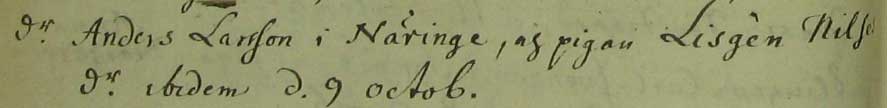 dr. Anders Larsson i Näringe, og pigan Lisgèn Nils
dr. ibidem d. 9 octob.